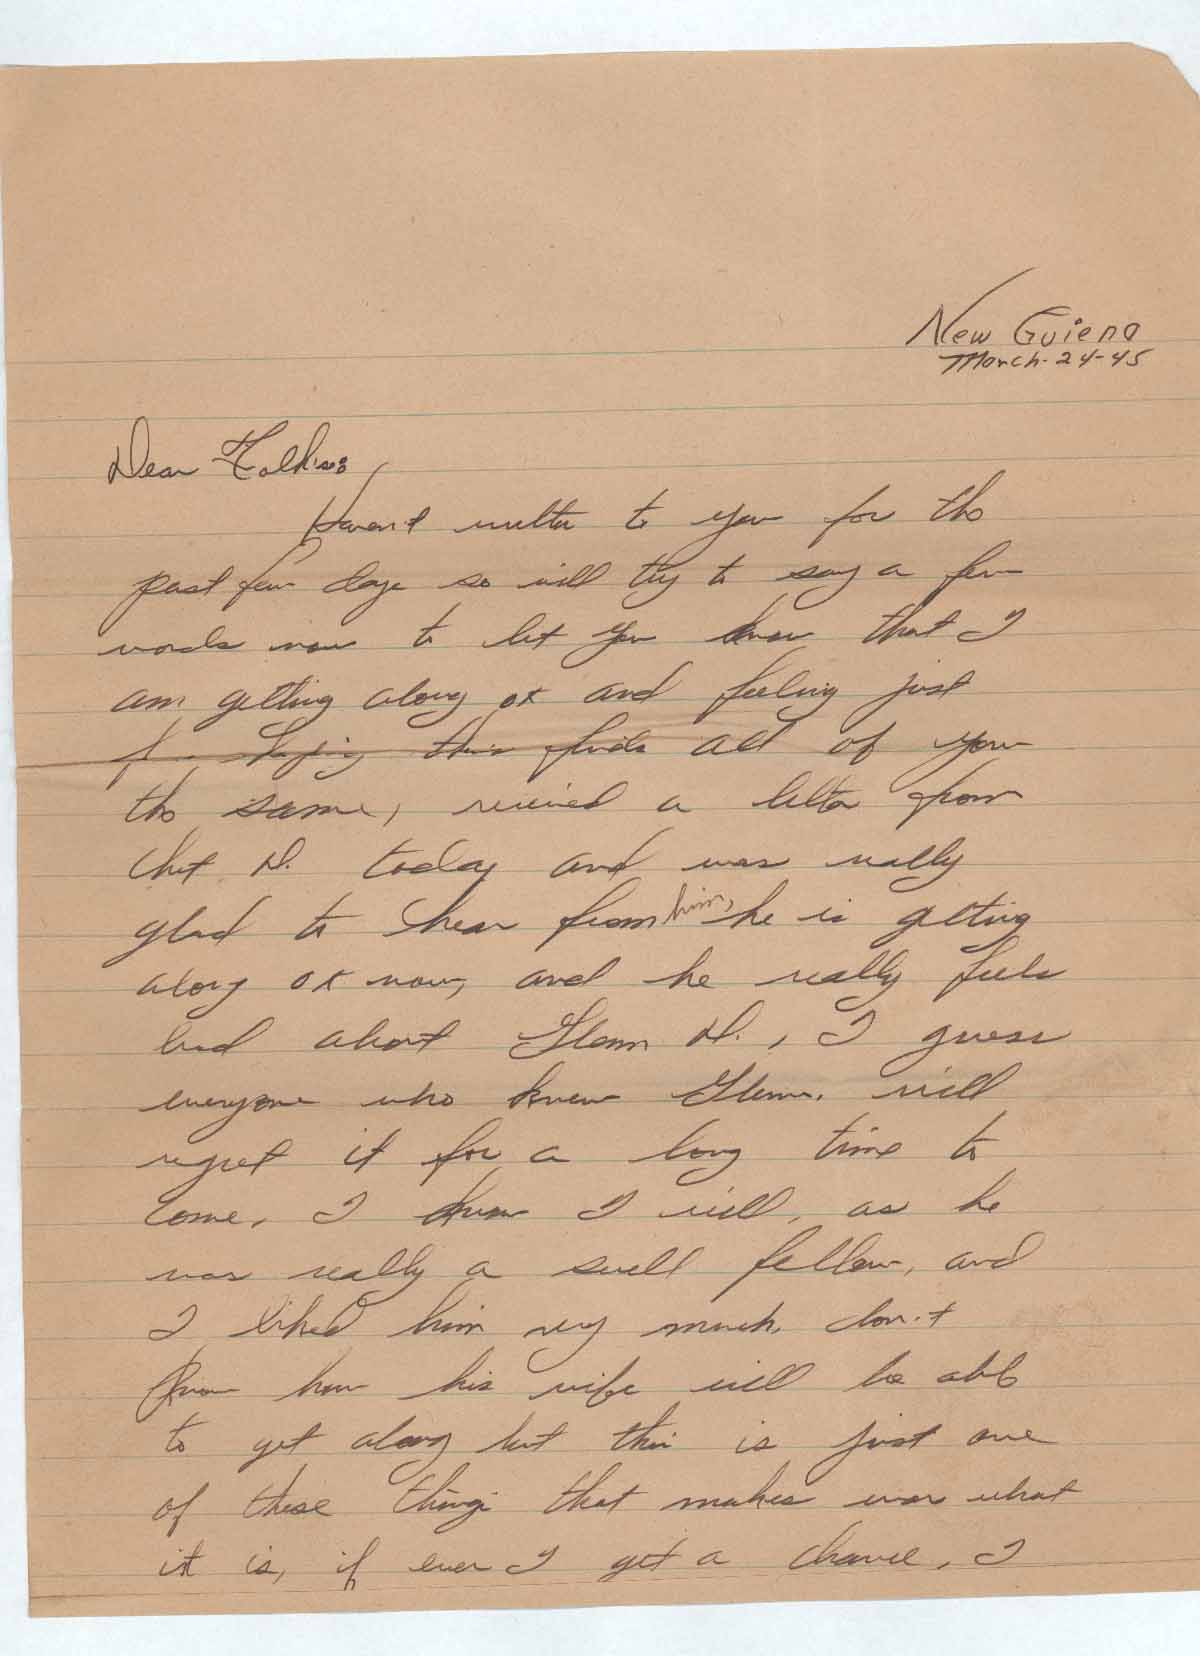 New Guiena
March-24-45
Dear Folkises
Haven't written to you for the
past few days so will try to say a few
words now to let you know that I
am getting along ok and feeling just
hoping this finds all of you
the same, recieved a letter from
Chet D. today and was really
glad to hear from him, he is getting
along ok now, and he really feels
bad about Glenn D., I guess
everyone who knew Glenn. will
regret it for a long time to
come, I know I will, as he
was really a swell fellow, and
I liked him very much, don't
know how his wife will be able
to get along but this is just one
of these things that makes war what
it is, if ever I get a chance, I